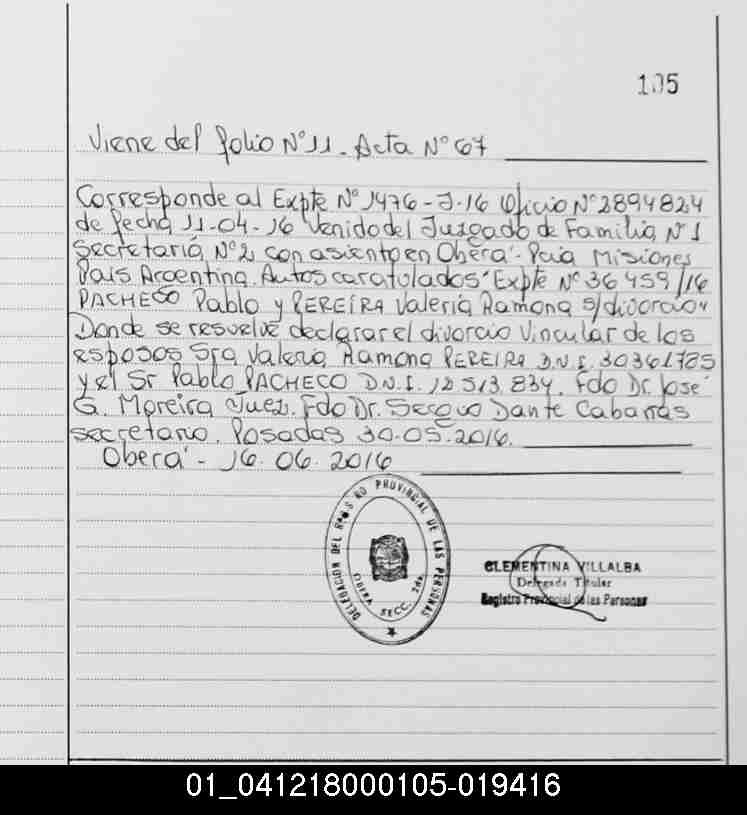 105
Viene del folio N° 11 - Acta N° 67
Corresponde al Expte N° 1476-J-16 Oficio N° 2894824
de fecha 11-04-16 Venido del Juzgado de Familia N° 1
Secretaría N° 2 con asiento en Oberá - Pcia Misiones
País Argentina. Autos caratulados "Expte N° 36459/16
PACHECO Pablo y PEREIRA Valeria Ramona s/divorcio"
Donde se resuelve declarar el divorcio Vincular de los
esposos Sra Valeria Ramona PEREIRA D.N.I. 30361785
y el Sr Pablo PACHECO D.N.I. 12.513.834. Fdo Dr. José
G. Moreira Juez. Fdo Dr. Sergio Dante Cabañas
secretario. Posadas 30-05-2016.
Oberá - 16.06.2016
DELEGACION DEL PROVINCIAL DE LAS PERSONAS
SECC. 2da
CLEMENTINA VILLALBA
Delegada Titular
Registro Provincial de las Personas
01_041218000105-019416